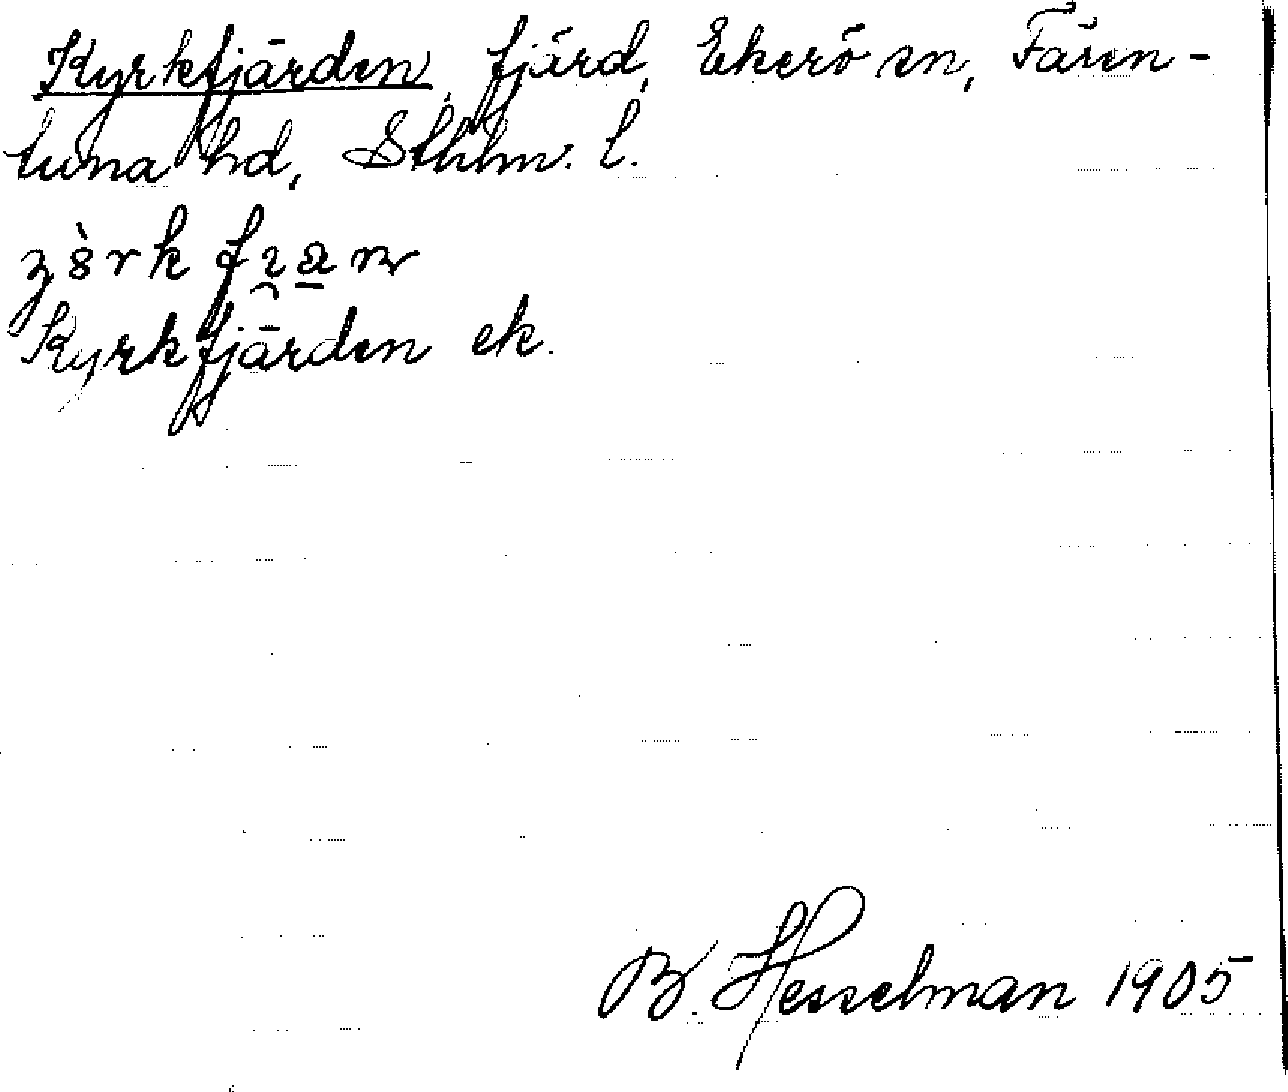 Kyrkfjärden, fjärd, Ekerö sn, Fären-
tuna hd, Sthlm. l.
Kyrkfjärden ek.
B. Hesselman 1905